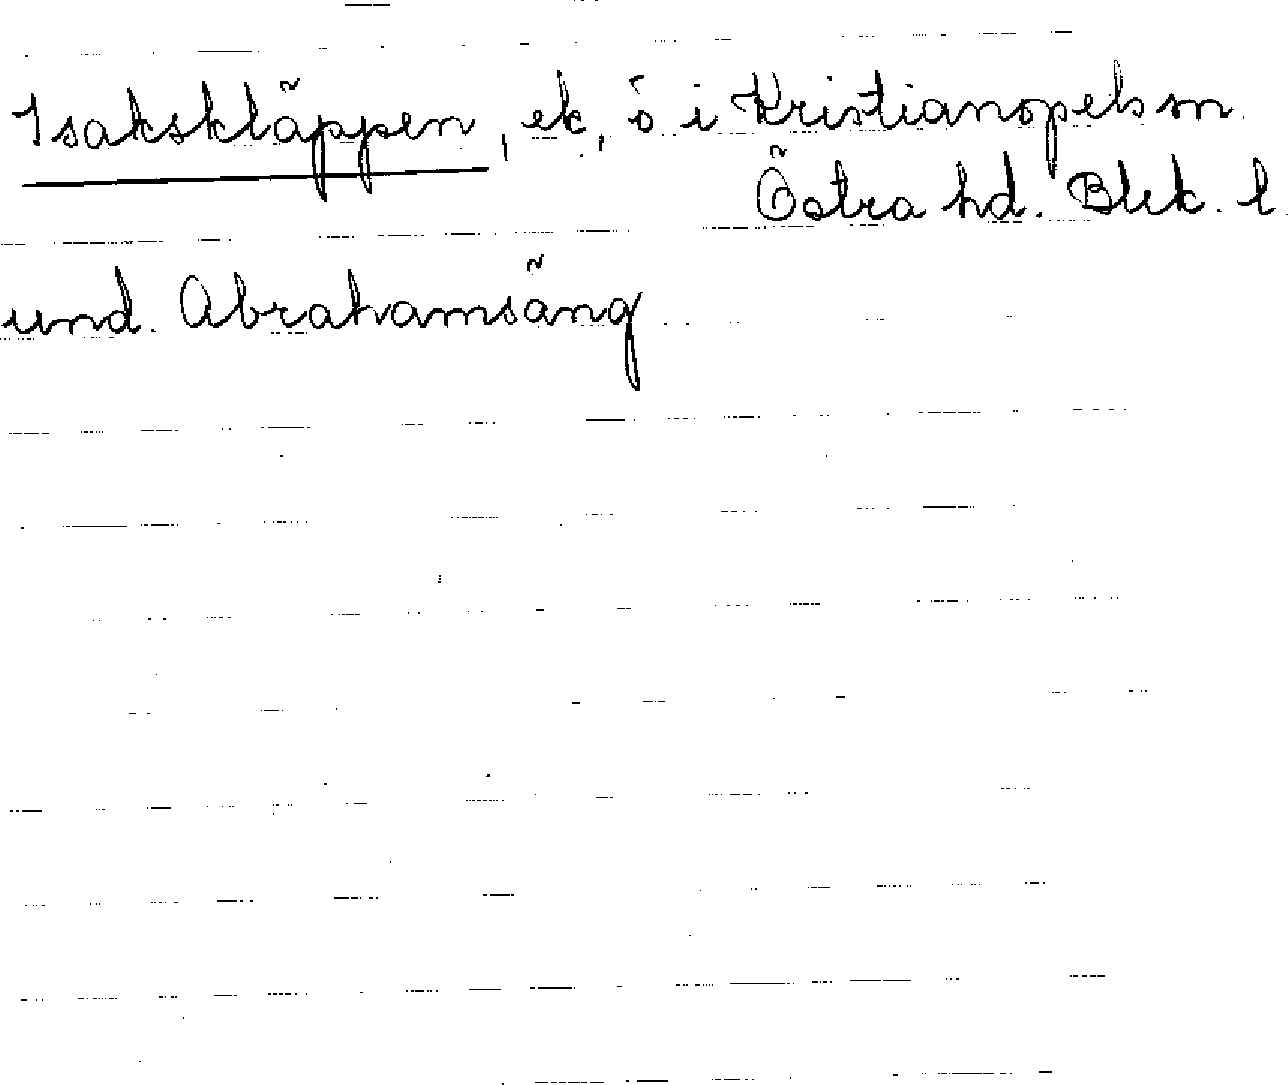 Isakskläppen, ek, ö i Kristianopels sn.
Östra hd. Blek. l.
und. Abrahamsäng